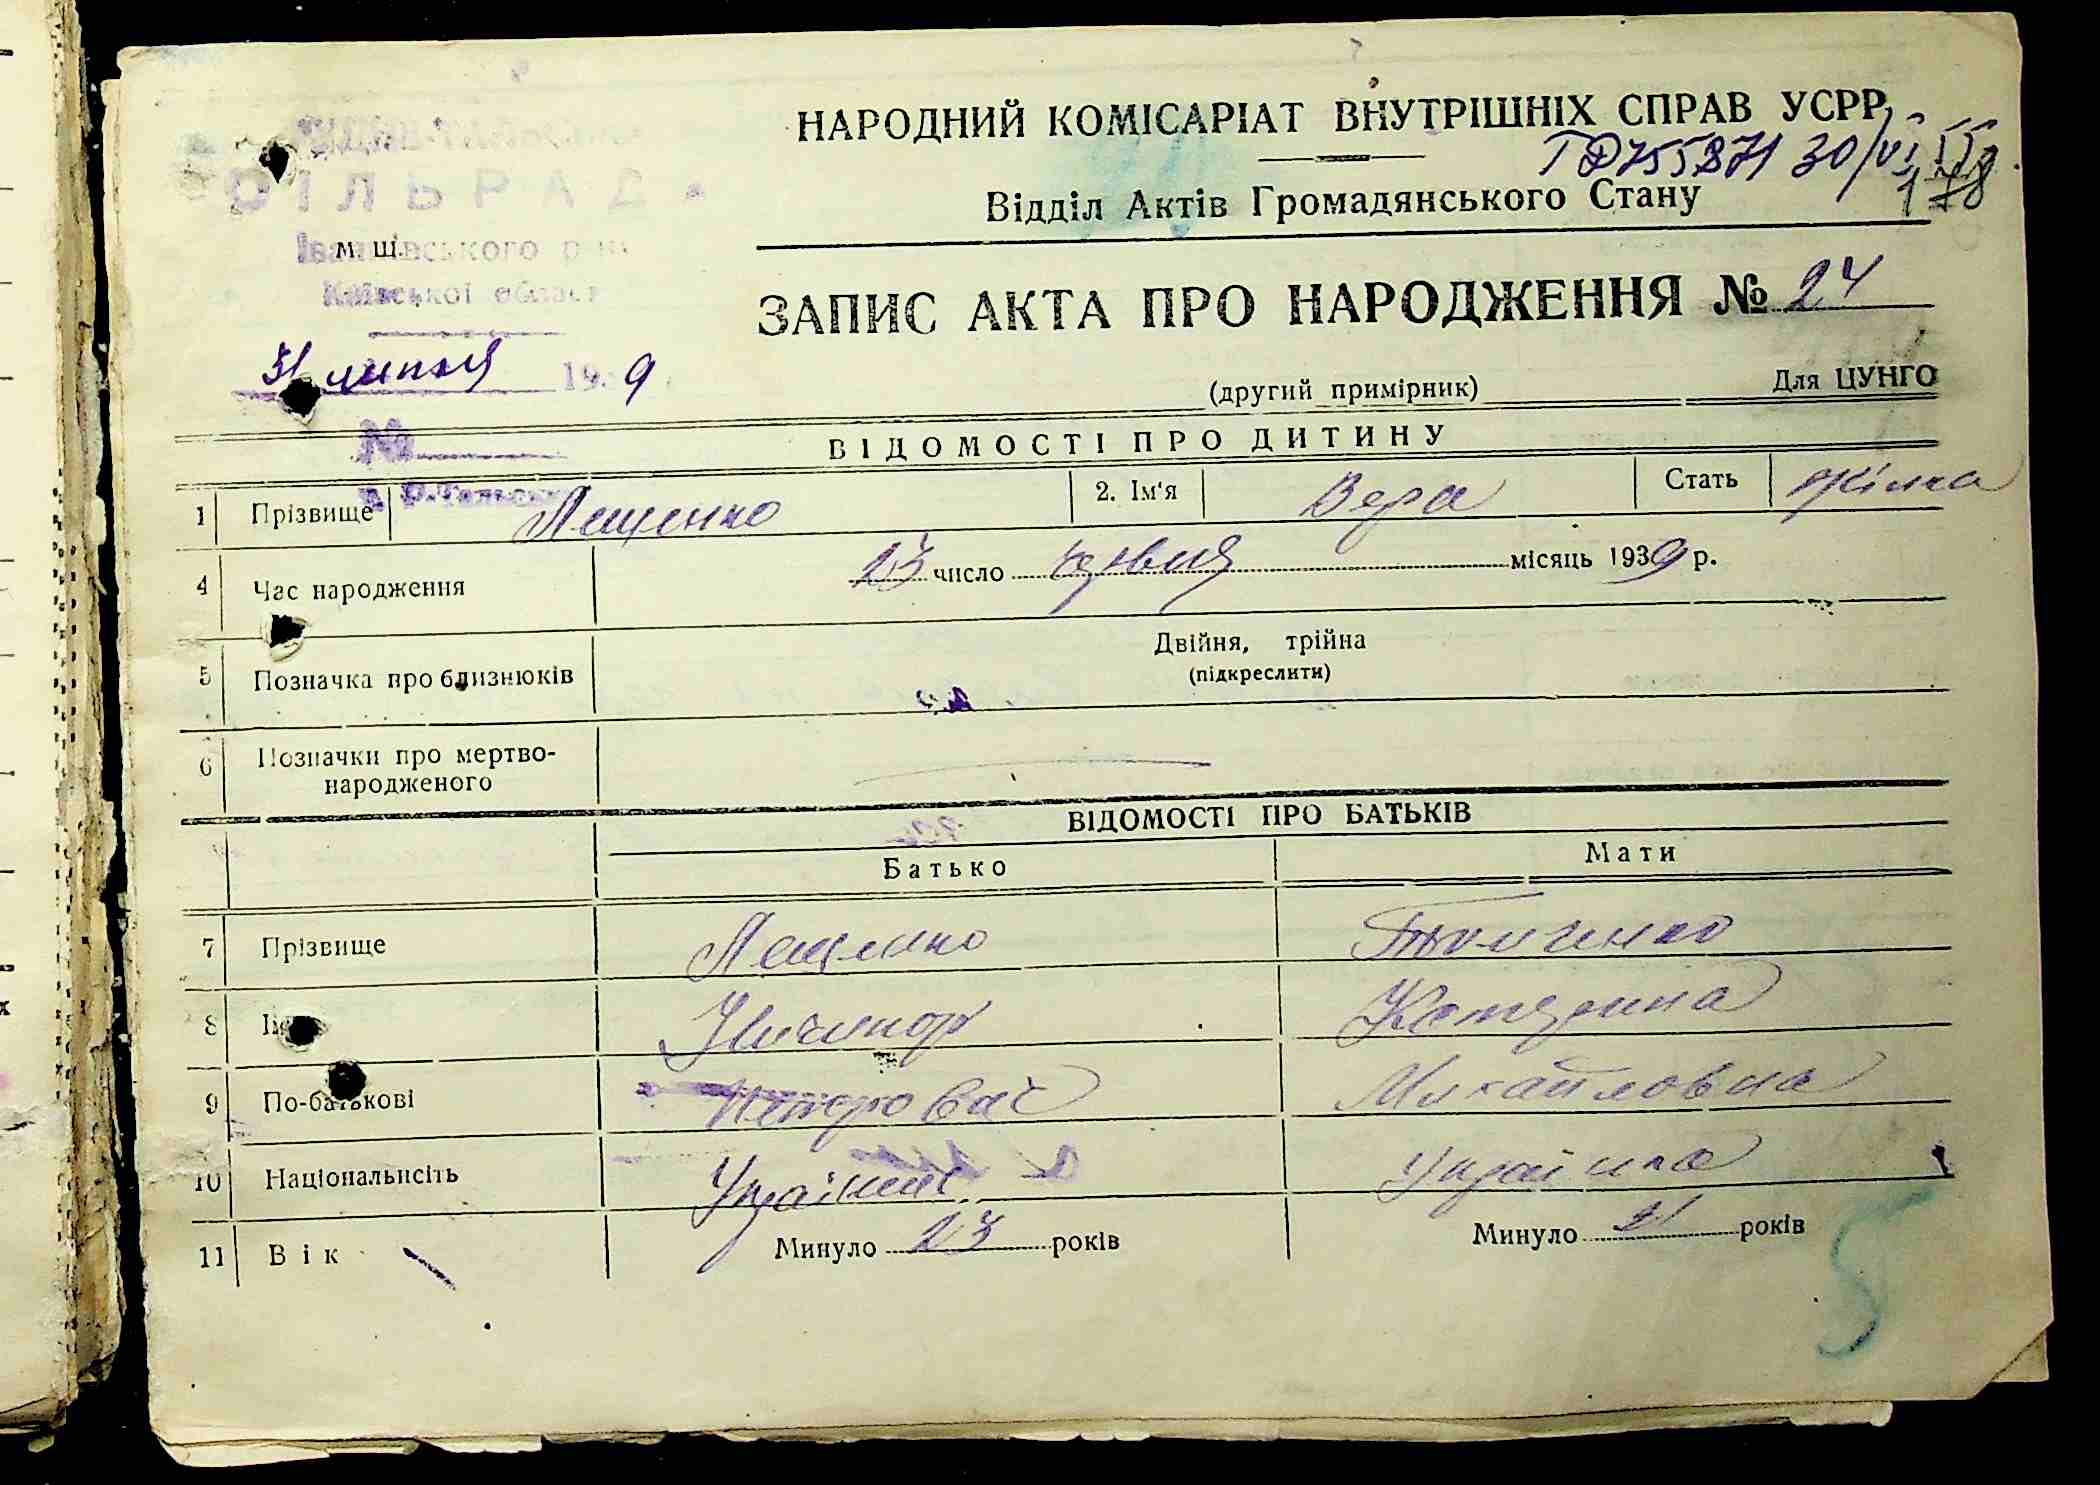 НАРОДНИЙ КОМІСАРІАТ ВНУТРІШНІХ СПРАВ УСРР
30/VI
1978
Відділ Актів Громадянського Стану
СІЛЬРАДА
м. ш.
Іванківського
Київської област
ЗАПИС АКТА ПРО НАРОДЖЕННЯ № 24
31 липня 19 9
(другий примірник)
Для ЦУНГО
№
ВІДОМОСТІ ПРО ДИТИНУ
1 Прізвище Лещенко 2. Ім'я Вера Стать Жінка
4 Час народження 23 число місяць 1939 р.
5 Позначка про близнюків Двійня, трійна
(підкреслити)
6 Позначки про мертво-
народженого
ВІДОМОСТІ ПРО БАТЬКІВ
Батько Мати
7 Прізвище Лещенко
8 Ничипор Катерина
9 По-батькові Петрович Михайловна
10 Національнсіть Українец Українка
11 Вік Минуло 23 років Минуло 21 років
5